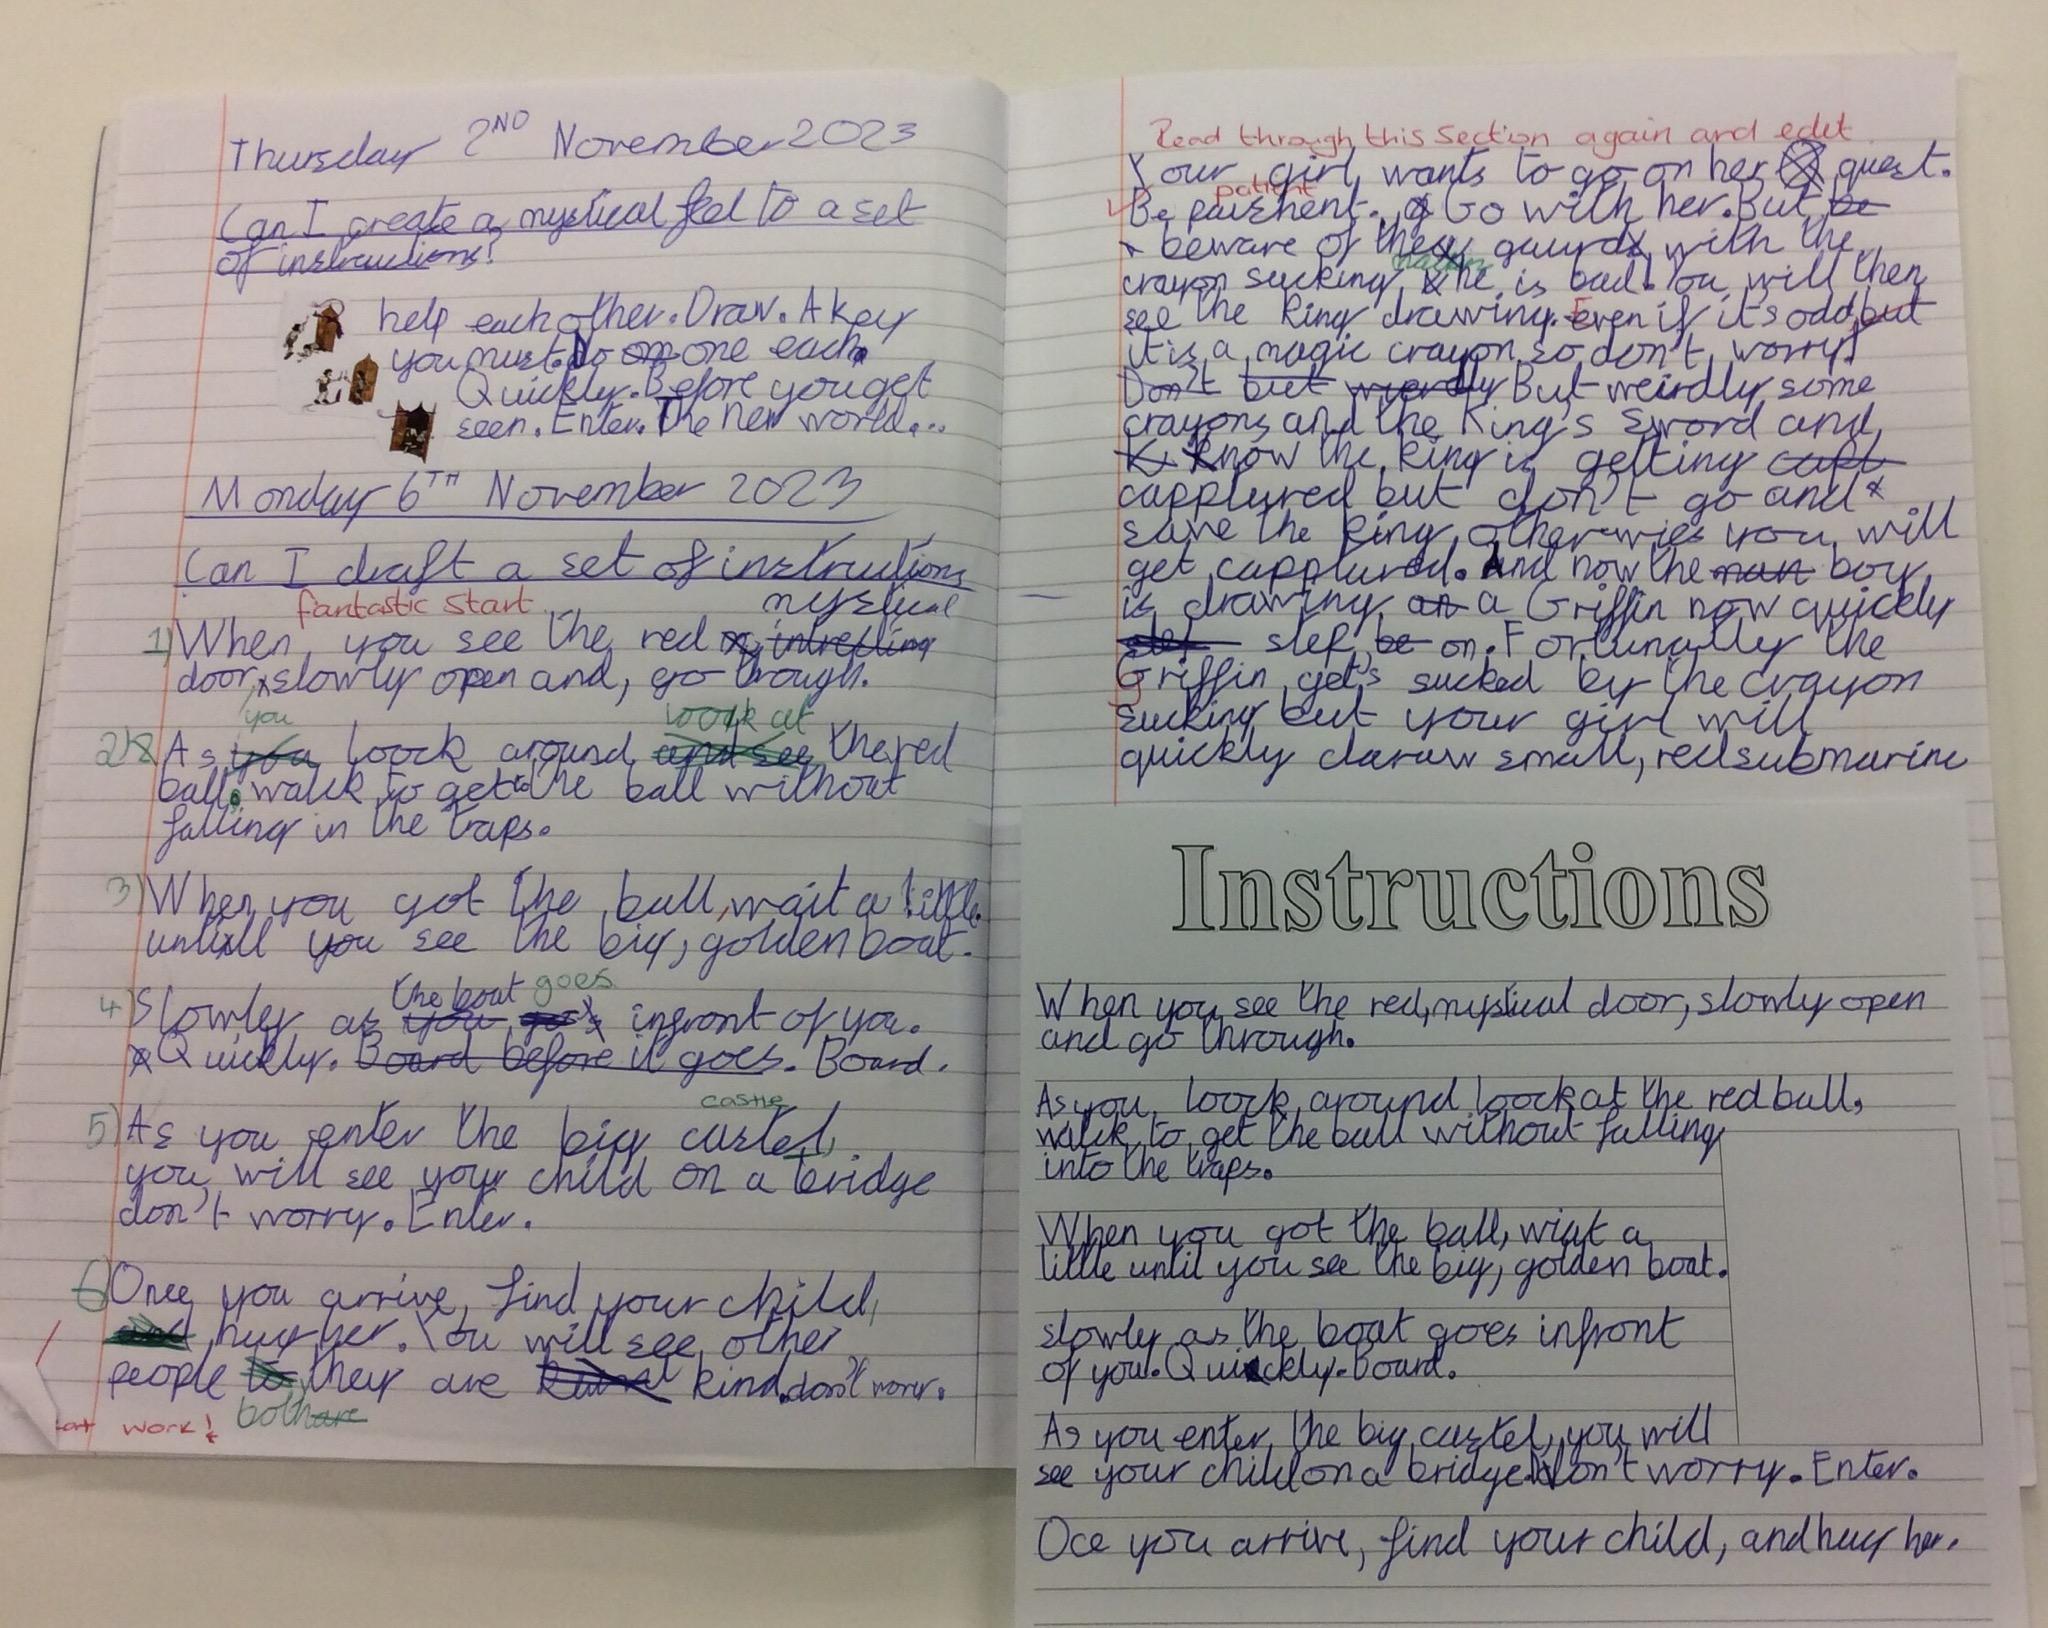 Thursday 2ND November 2023
Can I create a mystical feel to a set
of instructions?
help each other. Draw. A key
you must. Do on one each.
Quickly. Before you get
seen. Enter. The new world...
Monday 6TH November 2023
Can I draft a set of instructions
fantastic start
mystical
1) When you see the red intresting
door, slowly open and, go trough.
you
loock at
2) As you loock around and see the red
ball, walck to get to the ball without
falling in the traps.
3) When you got the ball, wait a little.
untill you see the big, golden boat.
the boat goes
4) Slowly as you go infront of you.
Quickly. Board before it goes. Board.
castle
5) As you enter the big castel,
you will see your child on a bridge
don't worry. Enter.
6) Once you arrive, find your child,
and hug her. You will see other
people to they are kind. don't worry.
both are
work!
Read through this section again and edit
Your girl wants to go on her quest.
patient
Be paishent. Go with her. But be
beware of the gaurd with the
crayon sucking he is bad. You will then
see the King drawing. Even if it's odd, but
it is a magic crayon so don't worry!
Don't but wierdly But weirdly some
crayons and the King's sword and
K Know the King is getting capt
capplured but don't go and
save the King otherwies you will
get capplured. And now the man boy
is drawing an a Griffin now quickly
step step be on. Fortunally the
Griffin get's sucked by the crayon
sucking but your girl will
quickly daraw small, red submarine
Instructions
When you see the red, mystical door, slowly open
and go through.
As you loock around loock at the red ball,
walck to get the ball without falling
into the traps.
When you got the ball, wiat a
little until you see the big, golden boat.
slowly as the boat goes infront
of you. Quickly. Board.
As you enter the big castel, you will
see your child on a bridge. Don't worry. Enter.
Oce you arrive, find your child, and hug her.